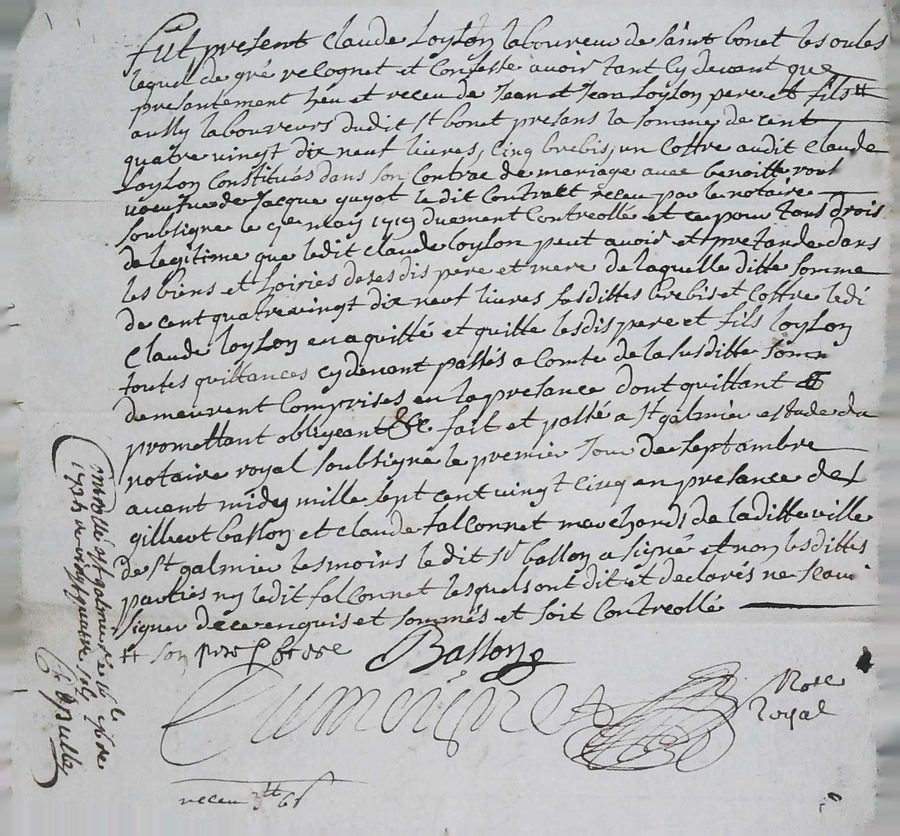 fut present Claude Loylon laboureur de saint bonet les oules
lequel de gré recognet et confesse avoir tant cy devant que
presantement heu et receu de Jean et Jean Loylon pere et fils #
aussy laboureurs dudit st bonet presans la somme de cent
quatre vingt dix neuf livres, cinq brebis, un coffre audit Claude
Loylon constitués dans son contrac de mariage avec benoitte
voeufve de Jacque guyot ledit contract receu par le notaire
soubsigne le may 1719 duement controllé et ce pour tous drois
de legitime que ledit claude loylon peut avoir et pretandre dans
les biens et hoiries de ses dis pere et mere de laquelle ditte somme
de cent quatre vingt dix neuf livres susdittes brebis et coffre ledi
Claude loylon en a quitté et quitte lesdis pere et fils loylon
toutes quittances cy devant passés a comte de la susditte som
demeurent comprises en la presance dont quittant &
promettant obligeant &c fait et passé a st galmier estude du
notaire royal soubsigné le premier jour de septambre
avent midy mille sept cent vingt cinq en presance de s
gilbert basson et claude falconnet marchands de laditte ville
de st galmier tesmoins ledit sr basson a signé et non lesdittes
parties ny ledit falconnet lesquels ont dit et declarés ne scavoi
signer de ce enquis et sommés et soit controllé
# son
Basson
Nore
Royal
receu
st galmier le